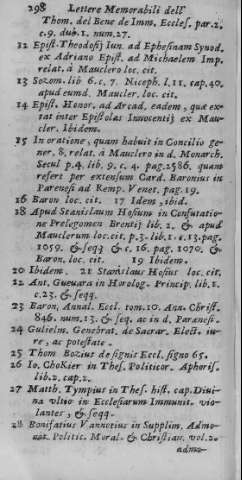 298 Lettere Memorabili dell'
Thom. del Bene de Imm. Eccles. par.2.
c.9. dub.1. num.27.
12 Epist. Theodosij Iun. ad Ephesinam Synod.
ex Adriano Epist. ad Michaelem Imp.
relat. à Mauclero loc. cit.
13 Sozom. lib 6. c. 7. Niceph. l. 11. cap.40.
apud eumd. Maucler. loc. cit.
14 Epist. Honor. ad Arcad. eadem, quæ ex-
tat inter Epistolas Innocentij ex Mau-
cler. Ibidem.
15 In oratione, quam habuit in Concilio ge-
ner. 8. relat. à Mauclero in d. Monarch.
Secul p.4. lib. 9. c. 4. pag.2586. quam
refert per extensum Card. Baronius in
Parænesi ad Remp. Venet. pag. 19.
16 Baron loc. cit. 17 Idem, ibid.
18 Apud Stanislaum Hosium in Confutatio-
ne Prolegomen Brentij lib. 2. & apud
Mauclerum loc. cit. p.3. lib. 1. c. 13. pag.
1059. & seqq & c. 16. pag. 1070. &
Baron. loc. cit. 19 Ibidem.
20 Ibidem. 21 Stanislaus Hosius loc. cit.
22 Ant. Gueuara in Horolog. Princip. lib. 1.
c.23. & seqq.
23 Baron. Annal. Eccl. tom.10. Ann. Christ.
846. num. 13. & seq. ac in d. Parænesi.
24 Gulielm. Genebrat. de Sacrar. Elect. iu-
re, ac potestate.
25 Thom Bozius de signis Eccl. signo 65.
26 Io. Chokier in Thes. Politicor. Aphoris.
lib.2. cap.2.
27 Matth. Tympius in Thes. hist. cap. Diui-
na vltio in Ecclesiarum Immunit. vio-
lantes, & seqq.
28 Bonifatius Vannozius in Supplim. Admo-
not. Politic. Moral. & Christian. vol.2.
admo-